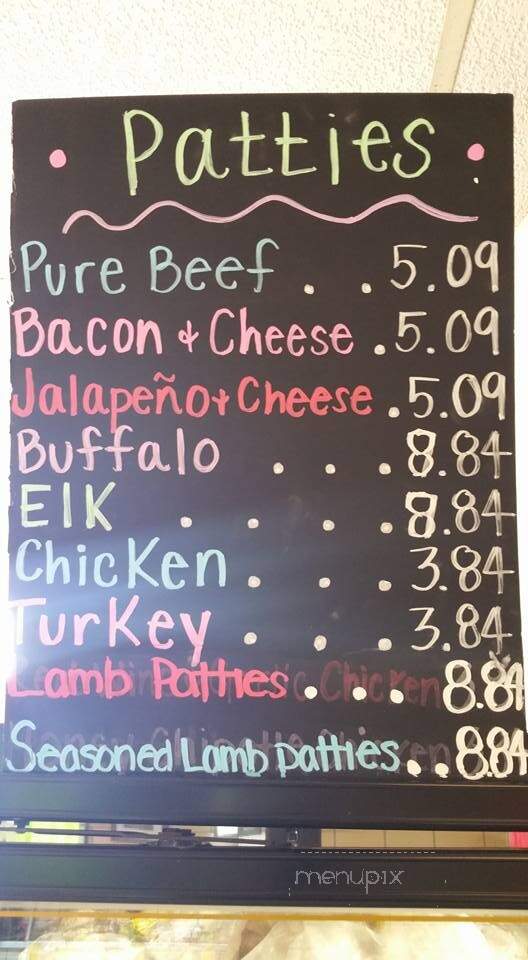 Patties
Pure Beef . . 5.09
Bacon & Cheese . 5.09
Jalapeño + Cheese . 5.09
Buffalo . . . 8.84
Elk . . . . 8.84
Chicken . . . 3.84
Turkey . . . 3.84
Lamb Patties . . . . 8.84
Chicken
Seasoned Lamb patties . . 8.84
menupix